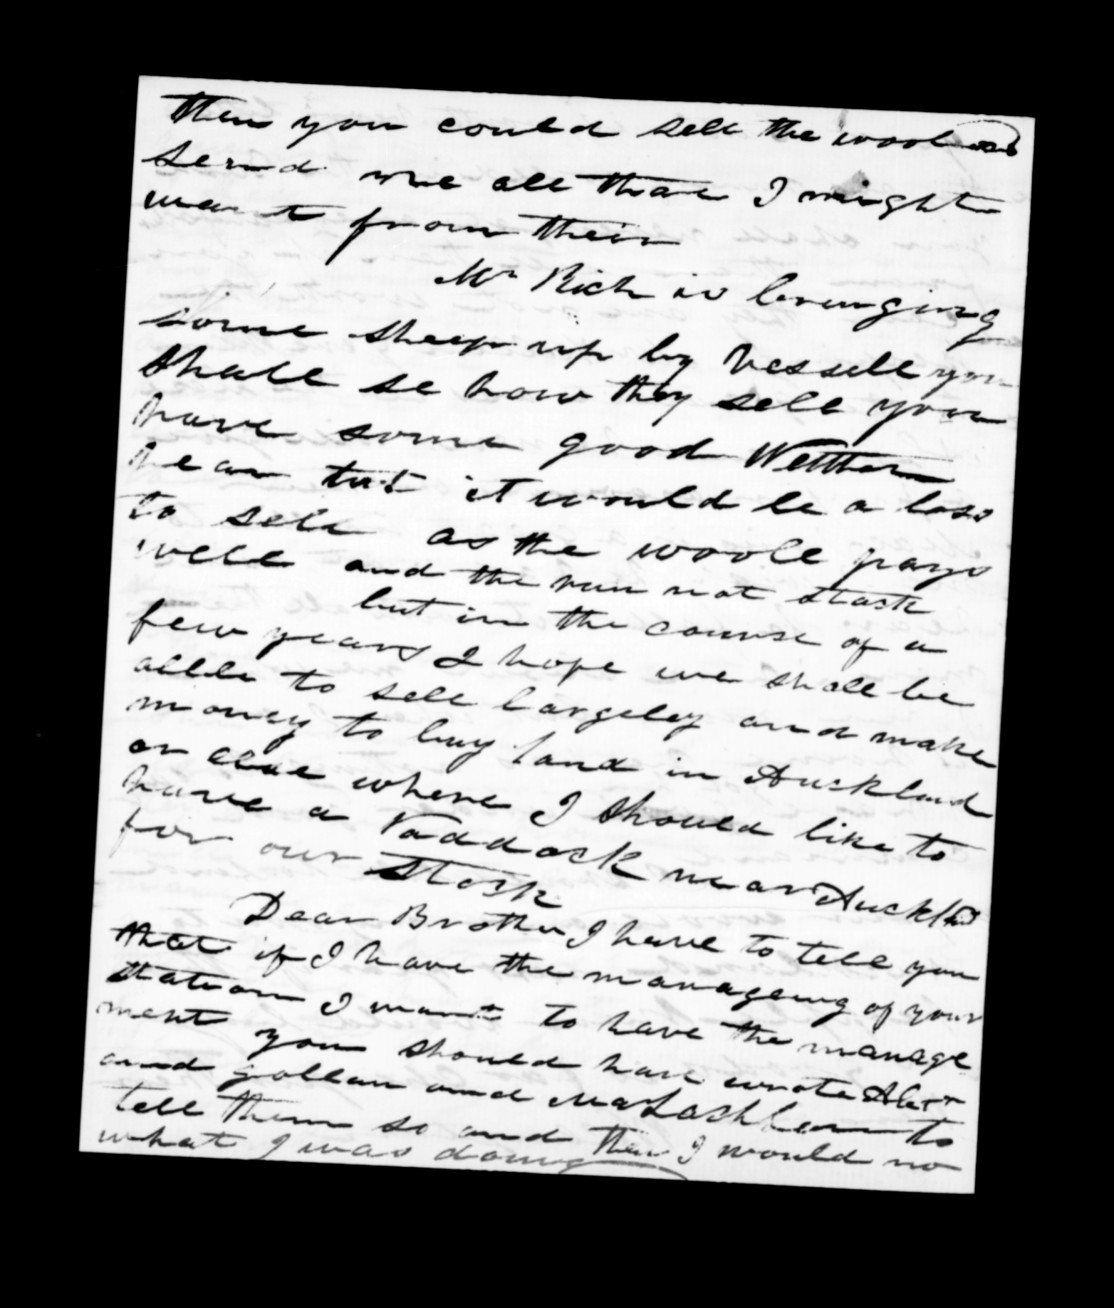 then you could sell the wool and
send me all that I might
want from their
Mr Rich is bringing
some sheep up by Vessell you
shall se how they sell your
have some good Wether
hear but it would be a loss
to sell as the woole pays
well and the run not stock
but in the course of a
few years I hope we shall be
able to sell largeley and make
money to buy land in Auckland
or else where I should like to
have a Paddock near Auckland
for our Stock
Dear Brother I have to tell you
that if I have the manageing of your
station I want to have the manage
ment you should have wrote Alexr
and gollan and to
tell them so and then I would no
what I was doing